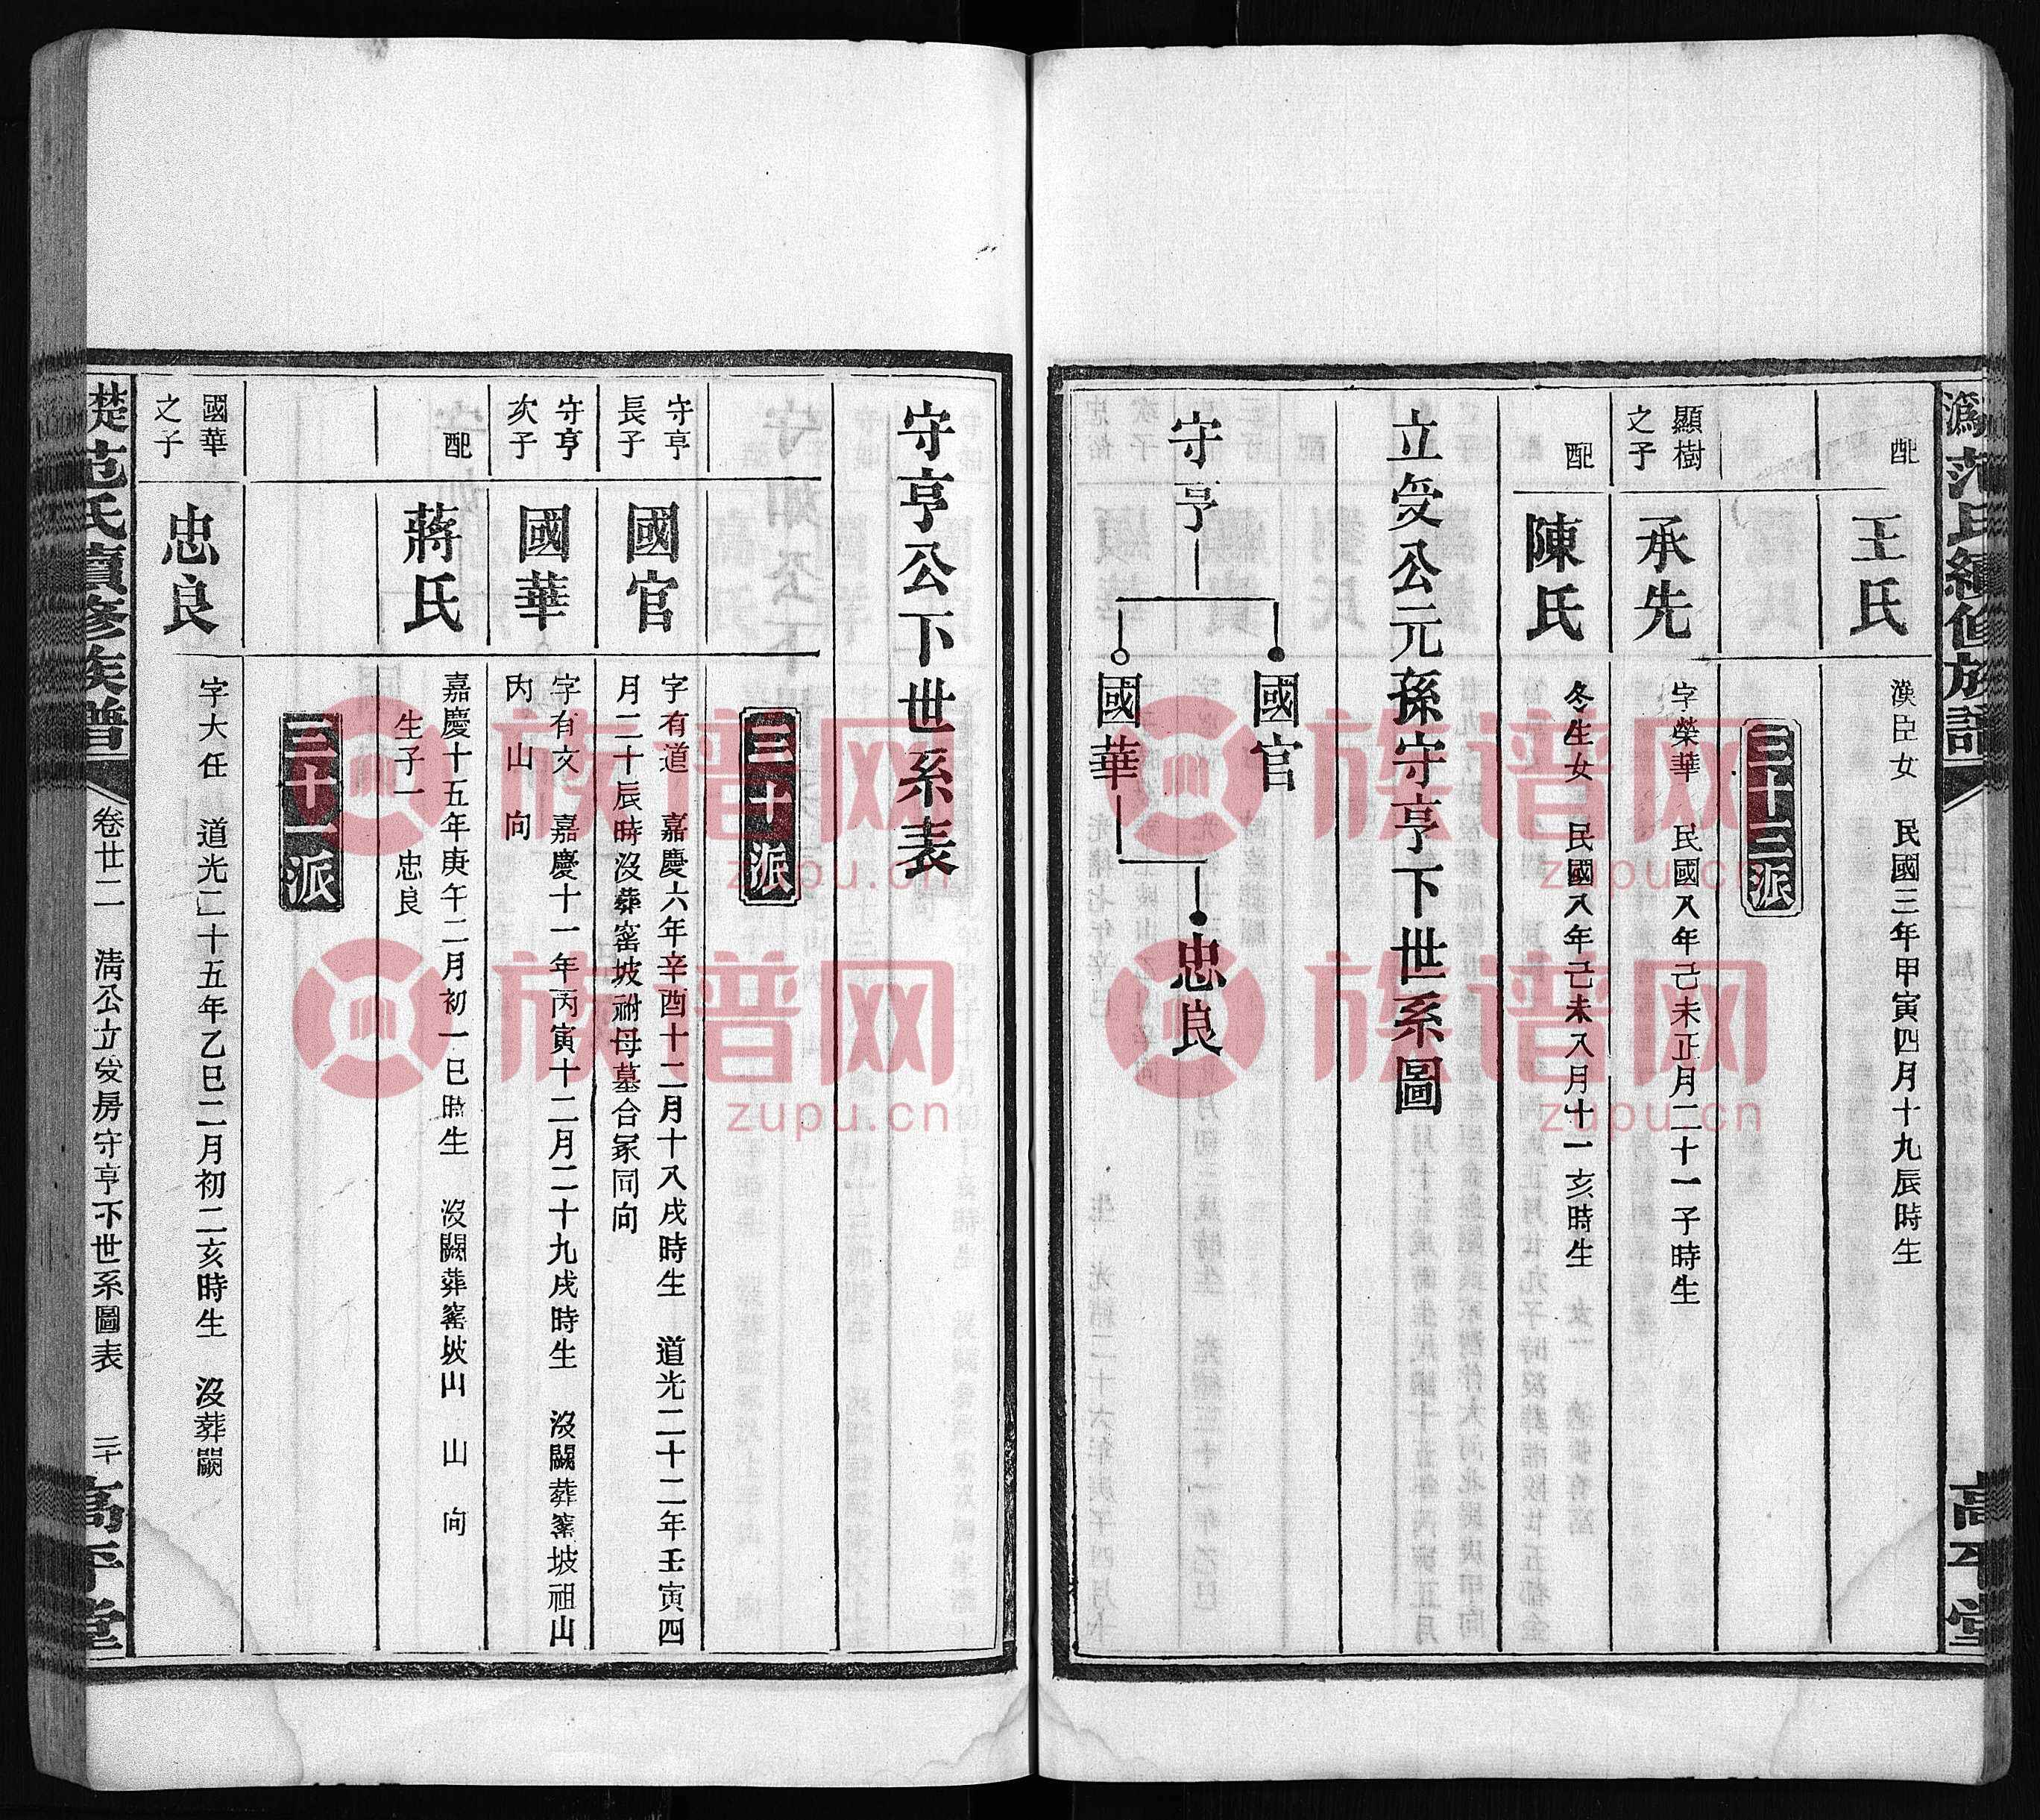 溈范氏續修族譜
高平堂
配
王氏
漢臣女 民國三年甲寅四月十九辰時生
三十三派
顯樹之子
承先
字榮華 民國八年己未正月二十一子時生
配
陳氏
冬生女 民國八年己未八月十一亥時生
立受公元孫守亨下世系圖
守亨
國官
國華
忠良
守亨公下世系表
三十派
守亨長子
國官
字有道 嘉慶六年辛酉十二月十八戌時生 道光二十二年壬寅四
月二十辰時沒葬窰坡祔母墓合冢同向
守亨次子
國華
字有文 嘉慶十一年丙寅十二月二十九戌時生 沒闕葬窰坡祖山
內山 向
配
蔣氏
嘉慶十五年庚午二月初一巳時生 沒闕葬窰坡山 山 向
生子一 忠良
三十一派
國華之子
忠良
字大任 道光二十五年乙巳二月初二亥時生 沒葬闕
楚范氏續修族譜
卷廿二 淸公立受房守亨下世系圖表 二十
高平堂
族譜网
zupu.cn
族譜网
zupu.cn
族譜网
zupu.cn
族譜网
zupu.cn